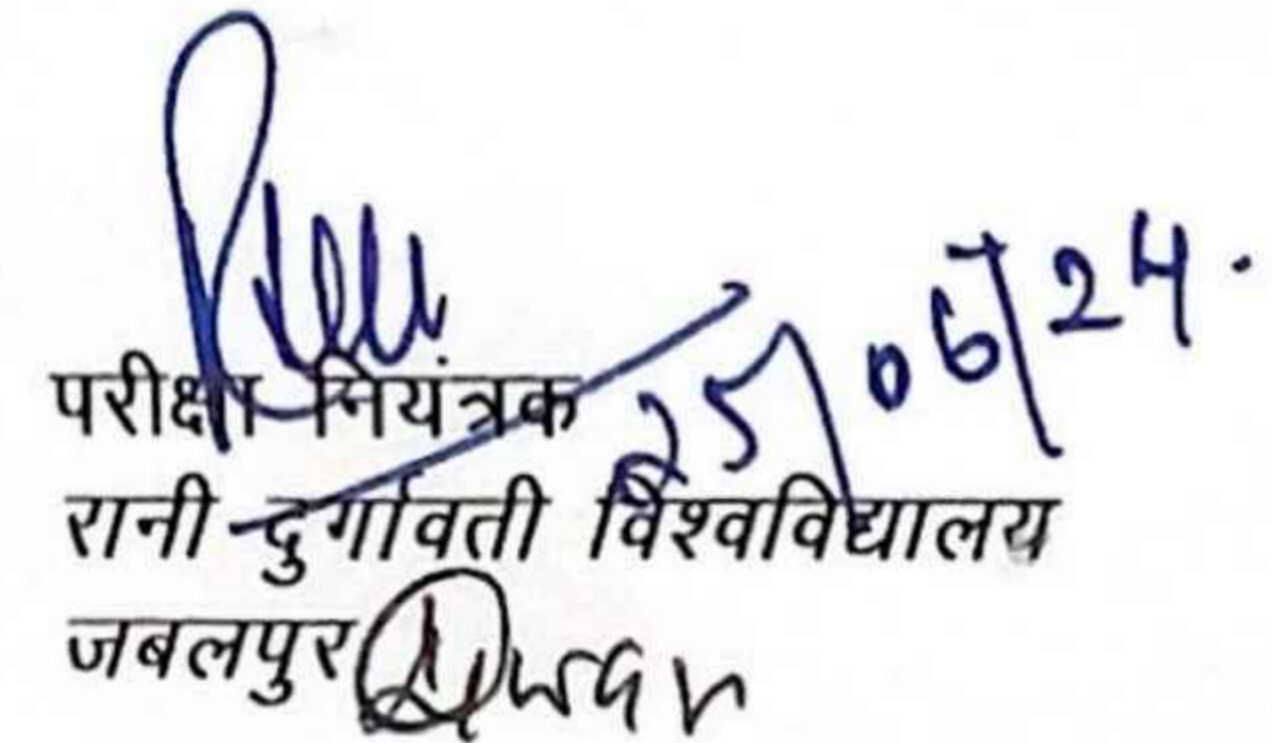 25/06/24.
परीक्षा नियंत्रक
रानी दुर्गावती विश्वविद्यालय
जबलपुर